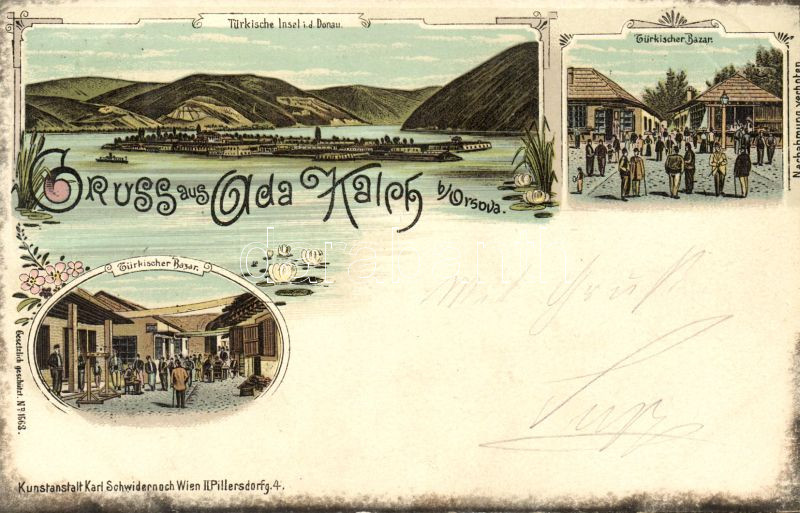 Türkische Insel i.d. Donau.
Türkischer Bazar.
Nachahmung verboten
Gruss aus Ada Kaleh b/Orsova.
Türkischer Bazar.
Mit Gruß
Gesetzlich geschützt. No 1563.
Kunstanstalt Karl Schwidernoch Wien II. Pillersdorfg. 4.